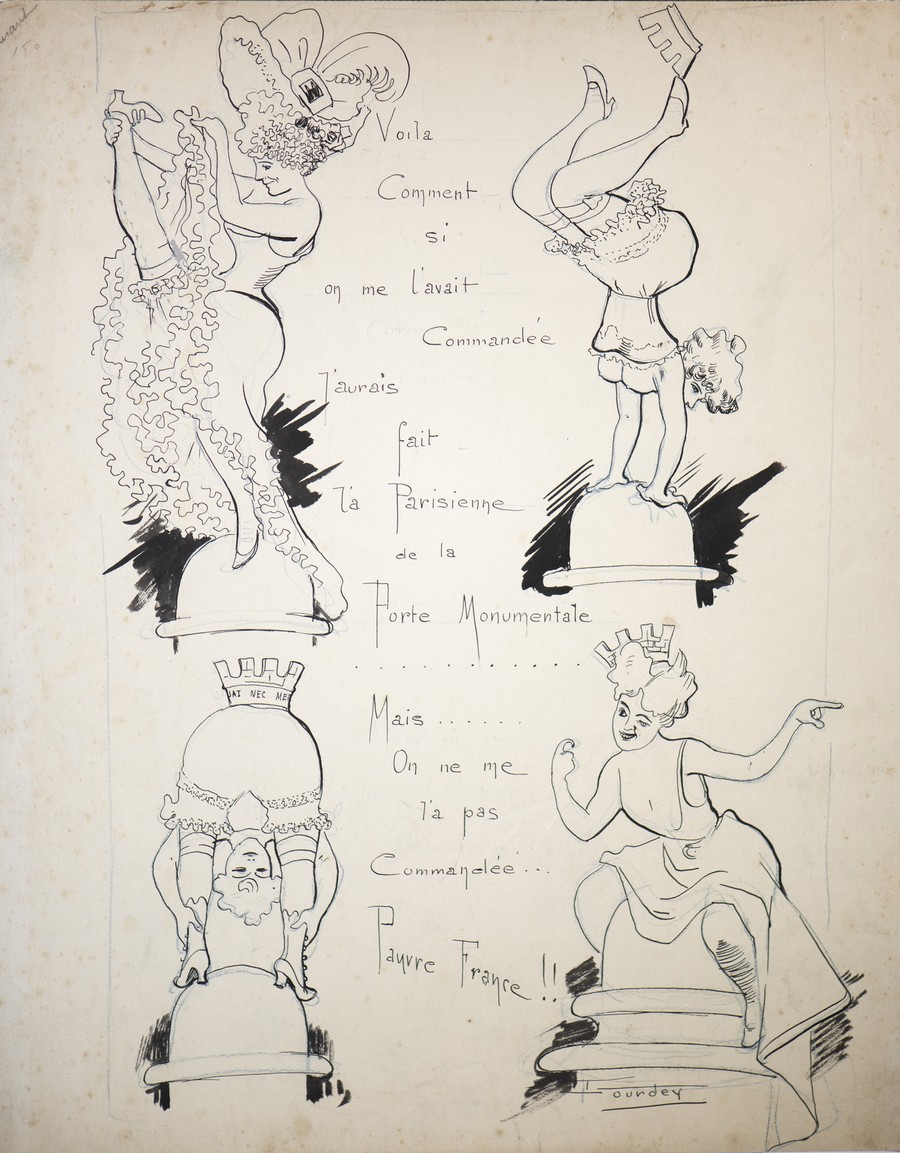 Voila
Comment
si
on me l'avait
Commandée
J'aurais
fait
la Parisienne
de la
Porte Monumentale
. . . . . . . . . . . .
Mais ......
On ne me
l'a pas
Commandée...
Pauvre France !!
NEC
Tourdey